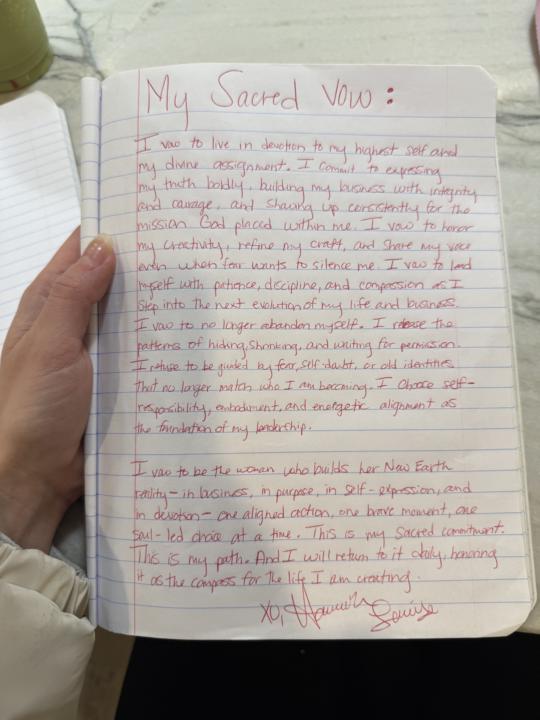 My Sacred Vow:
I vow to live in devotion to my highest self and
my divine assignment. I commit to expressing
my truth boldly, building my business with integrity
and courage, and showing up consistently for the
mission God placed within me. I vow to honor
my creativity, refine my craft, and share my voice
even when fear wants to silence me. I vow to lead
myself with patience, discipline, and compassion as I
step into the next evolution of my life and business.
I vow to no longer abandon myself. I release the
patterns of hiding, shrinking, and waiting for permission.
I refuse to be guided by fear, self-doubt, or old identities
that no longer match who I am becoming. I choose self-
responsibility, embodiment, and energetic alignment as
the foundation of my leadership.
I vow to be the woman who builds her New Earth
reality — in business, in purpose, in self-expression, and
in devotion — one aligned action, one brave moment, one
soul-led choice at a time. This is my Sacred commitment.
This is my path. And I will return to it daily, honoring
it as the compass for the life I am creating.
xo, Louise